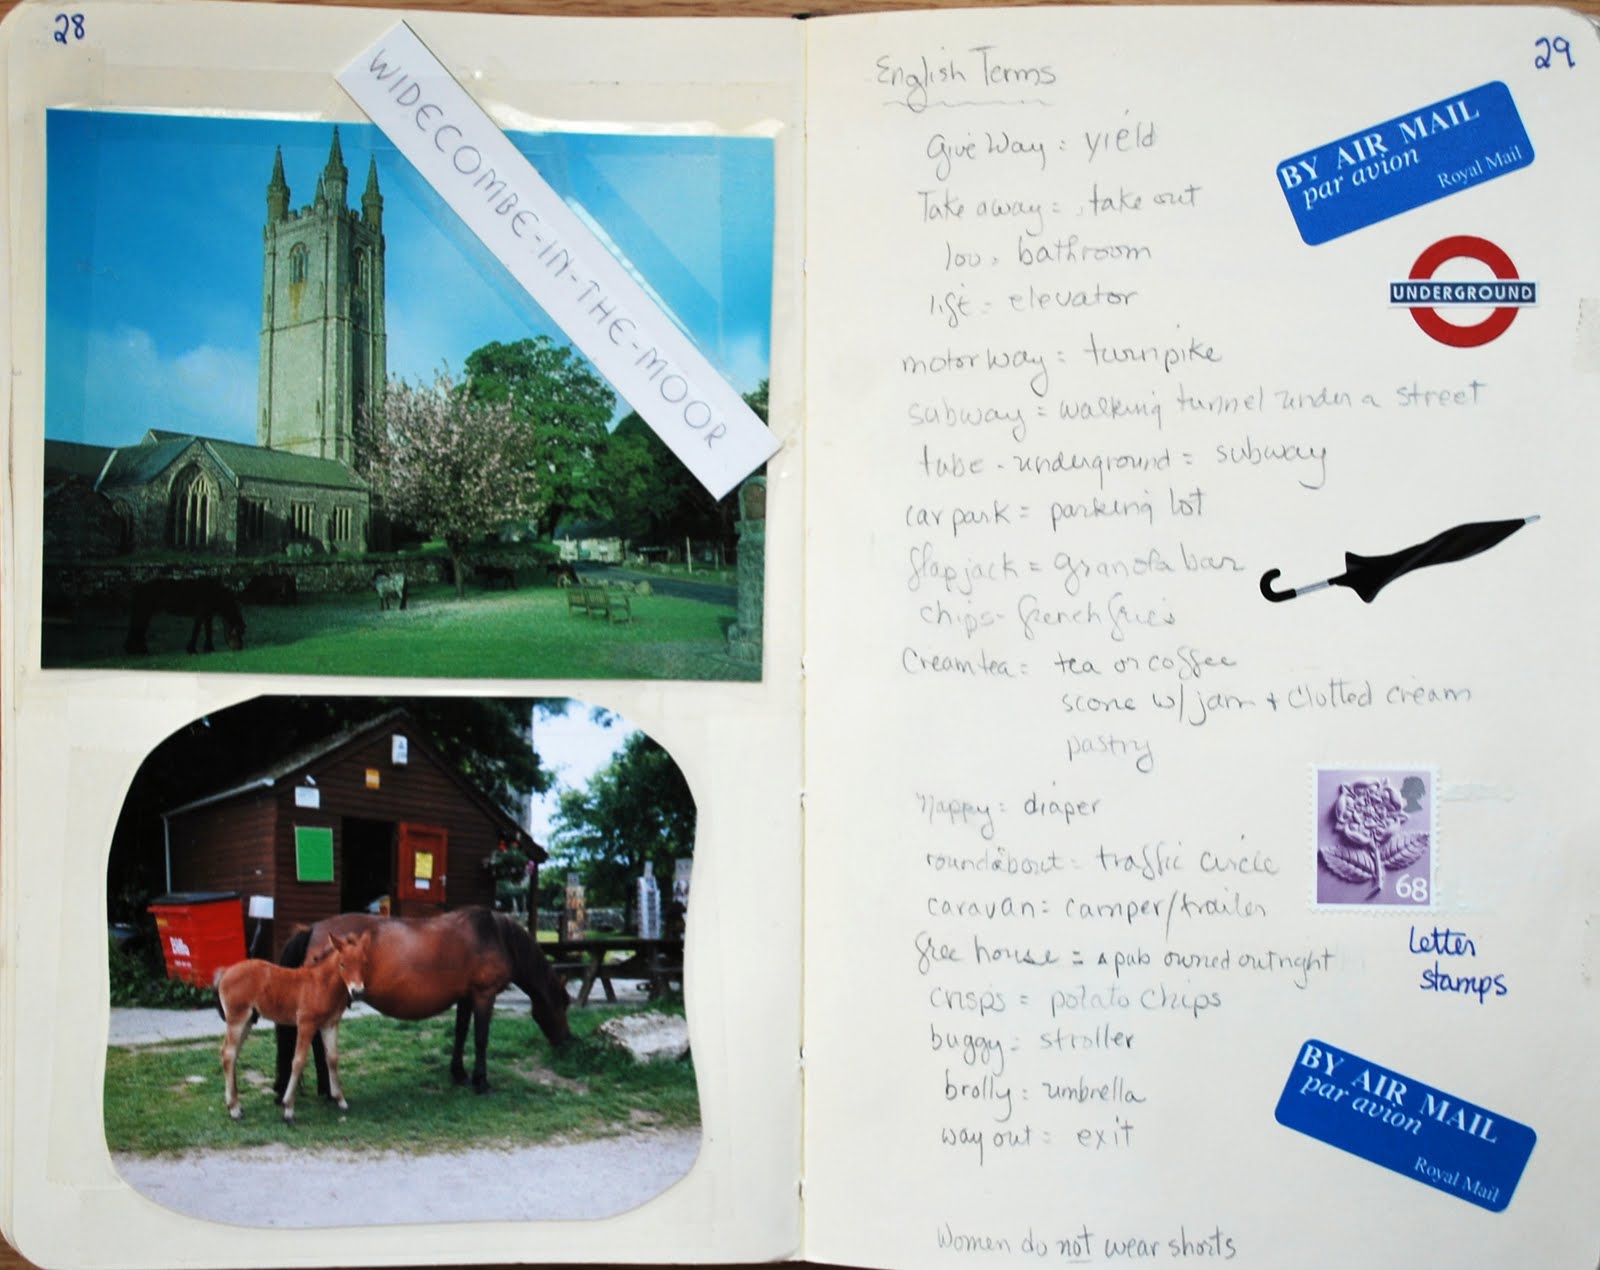 28
WIDECOMBE-IN-THE-MOOR
29
English Terms
Give Way = yield
Take away = take out
loo = bathroom
lift = elevator
motorway = turnpike
subway = walking tunnel under a street
tube - underground = subway
car park = parking lot
flapjack = granola bar
chips - french fries
Cream tea = tea or coffee
scone w/ jam + Clotted cream
pastry
nappy = diaper
roundabout = traffic circle
caravan = camper/trailer
free house = a pub owned outright
crisps = potato chips
buggy = stroller
brolly = umbrella
way out = exit
Women do not wear shorts
BY AIR MAIL
par avion
Royal Mail
UNDERGROUND
68
Letter
stamps
BY AIR MAIL
par avion
Royal Mail